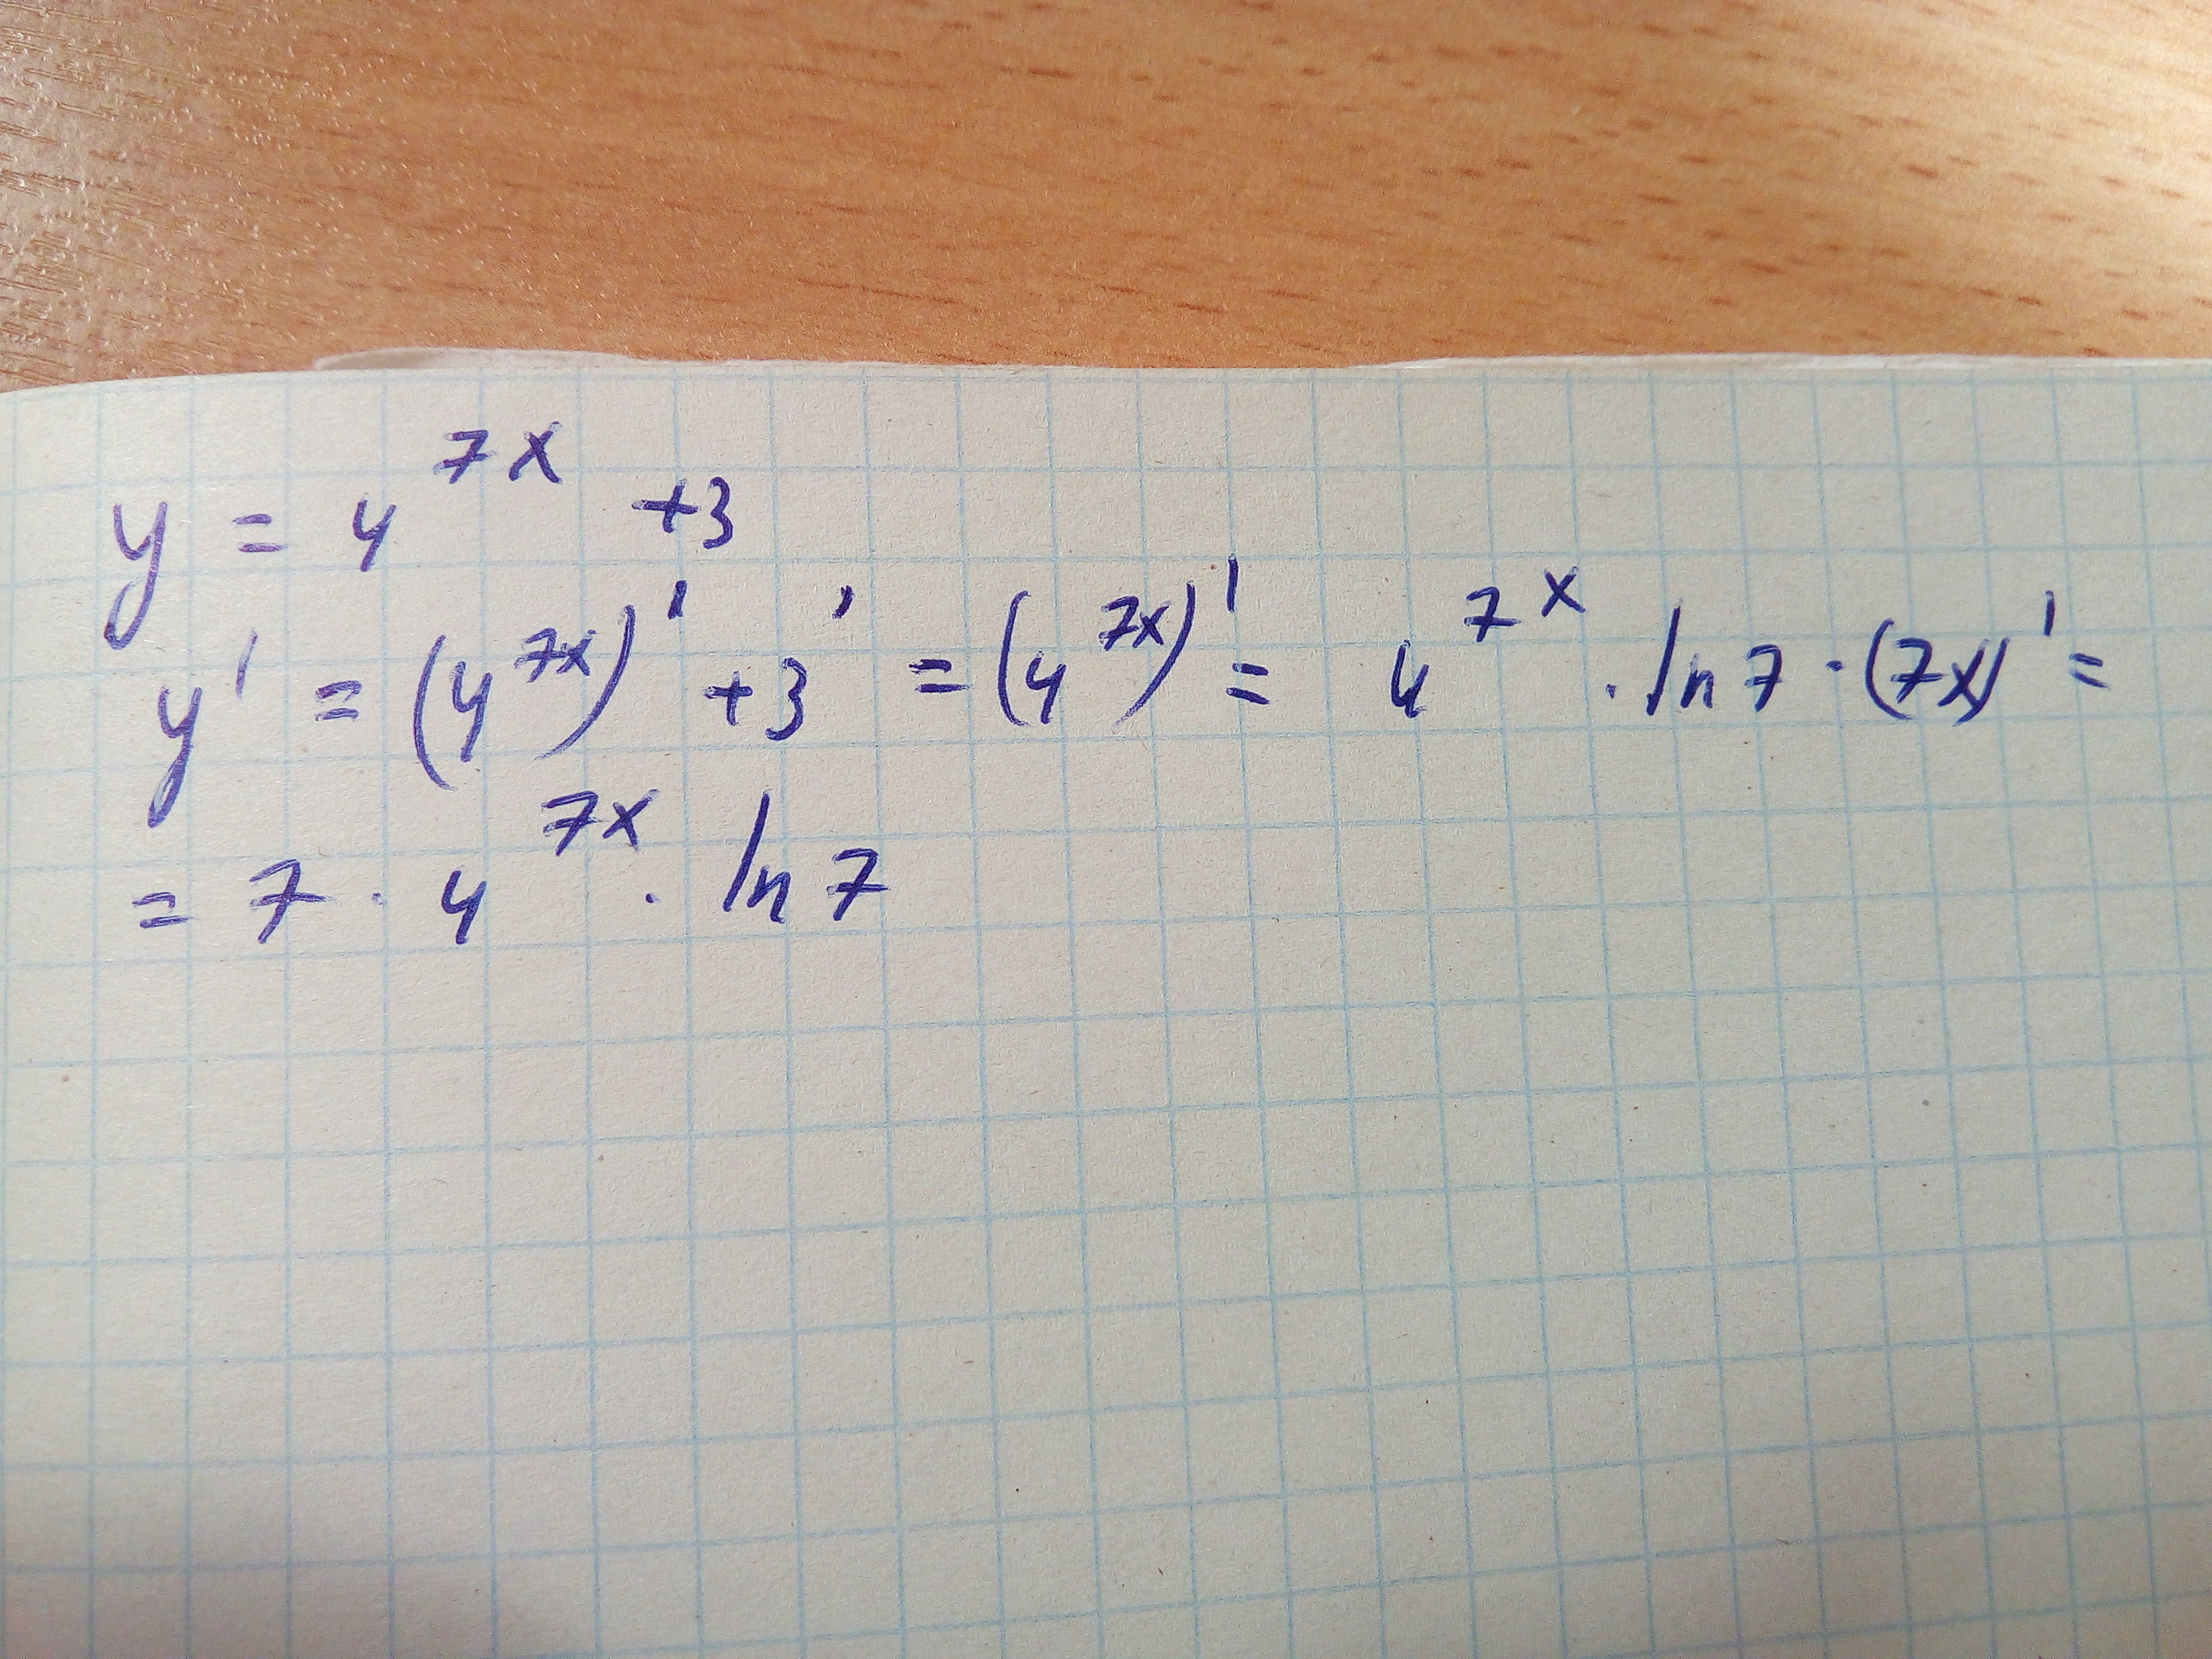 y = 4^{7x} + 3
y' = (4^{7x})' + 3' = (4^{7x})' = 4^{7x} · ln 7 · (7x)' =
= 7 · 4^{7x} · ln 7